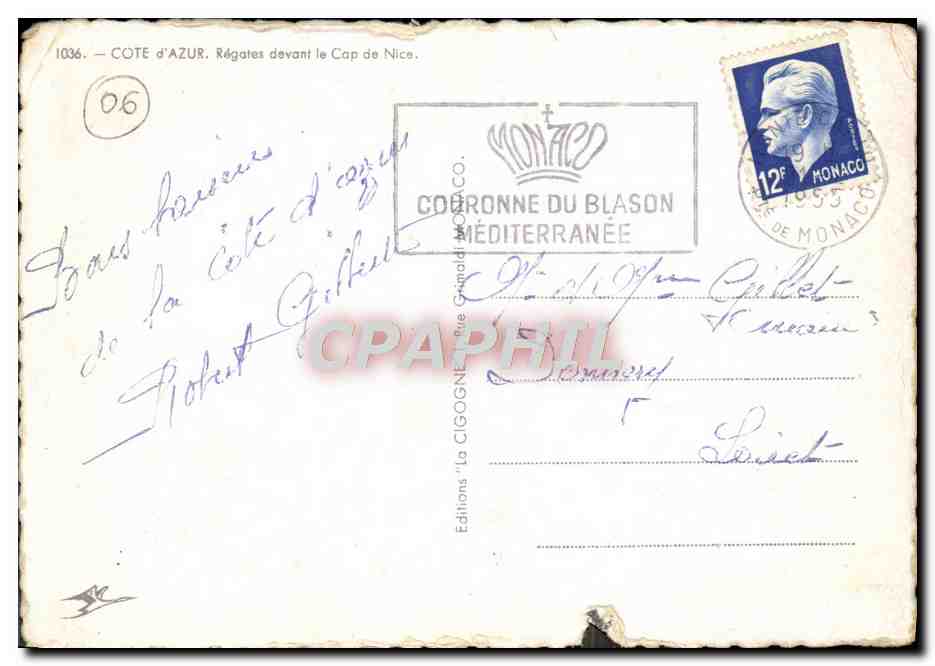 1036. — COTE d'AZUR. Régates devant le Cap de Nice.
06
Bons baisers
de la côte d'azur
Robert Gilberte
MONACO
COURONNE DU BLASON
MÉDITERRANÉE
12F MONACO
1953
DE MONACO
Editions "La CIGOGNE", Rue Grimaldi MONACO.
CPAPHIL
Mr et Mme Gillet
Donnery
Loiret